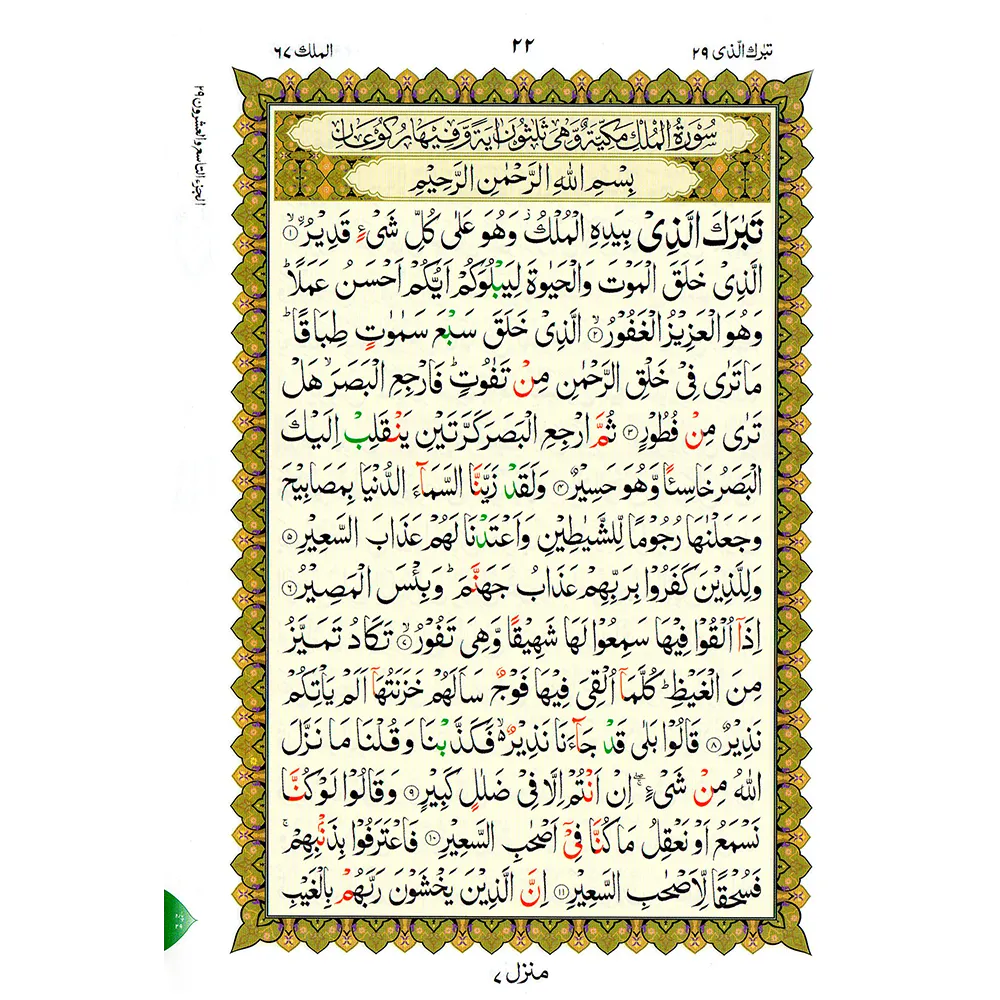 تبٰرك الّذى ٢٩
٢٢
الملك ٦٧
الجزء التاسع والعشرون ٢٩
سُوْرَةُ الْمُلْكِ مَكِّيَّةٌ وَّهِىَ ثَلٰثُوْنَ اٰيَةً وَّفِيْهَا رُكُوْعَانِ
بِسْمِ اللّٰهِ الرَّحْمٰنِ الرَّحِيْمِ
تَبٰرَكَ الَّذِىْ بِيَدِهِ الْمُلْكُ ؗ وَهُوَ عَلٰى كُلِّ شَىْءٍ قَدِيْرُ ۙ﴿١﴾
الَّذِىْ خَلَقَ الْمَوْتَ وَالْحَيٰوةَ لِيَبْلُوَكُمْ اَيُّكُمْ اَحْسَنُ عَمَلًا ؕ
وَهُوَ الْعَزِيْزُ الْغَفُوْرُ ۙ﴿٢﴾ الَّذِىْ خَلَقَ سَبْعَ سَمٰوٰتٍ طِبَاقًا ؕ
مَا تَرٰى فِىْ خَلْقِ الرَّحْمٰنِ مِنْ تَفٰوُتٍ ؕ فَارْجِعِ الْبَصَرَ ۙ هَلْ
تَرٰى مِنْ فُطُوْرٍ ﴿٣﴾ ثُمَّ ارْجِعِ الْبَصَرَ كَرَّتَيْنِ يَنْقَلِبْ اِلَيْكَ
الْبَصَرُ خَاسِئًا وَّهُوَ حَسِيْرٌ ﴿٤﴾ وَلَقَدْ زَيَّنَّا السَّمَآءَ الدُّنْيَا بِمَصَابِيْحَ
وَجَعَلْنٰهَا رُجُوْمًا لِّلشَّيٰطِيْنِ وَاَعْتَدْنَا لَهُمْ عَذَابَ السَّعِيْرِ ﴿٥﴾
وَلِلَّذِيْنَ كَفَرُوْا بِرَبِّهِمْ عَذَابُ جَهَنَّمَ ؕ وَبِئْسَ الْمَصِيْرُ ﴿٦﴾
اِذَاۤ اُلْقُوْا فِيْهَا سَمِعُوْا لَهَا شَهِيْقًا وَّهِىَ تَفُوْرُ ۙ﴿٧﴾ تَكَادُ تَمَيَّزُ
مِنَ الْغَيْظِ ؕ كُلَّمَاۤ اُلْقِىَ فِيْهَا فَوْجٌ سَاَلَهُمْ خَزَنَتُهَاۤ اَلَمْ يَاْتِكُمْ
نَذِيْرٌ ﴿٨﴾ قَالُوْا بَلٰى قَدْ جَآءَنَا نَذِيْرٌ ۙ۬ فَكَذَّبْنَا وَقُلْنَا مَا نَزَّلَ
اللّٰهُ مِنْ شَىْءٍ ۖۚ اِنْ اَنْتُمْ اِلَّا فِىْ ضَلٰلٍ كَبِيْرٍ ﴿٩﴾ وَقَالُوْا لَوْ كُنَّا
نَسْمَعُ اَوْ نَعْقِلُ مَا كُنَّا فِىْۤ اَصْحٰبِ السَّعِيْرِ ﴿١٠﴾ فَاعْتَرَفُوْا بِذَنْۢبِهِمْ ۚ
فَسُحْقًا لِّاَصْحٰبِ السَّعِيْرِ ﴿١١﴾ اِنَّ الَّذِيْنَ يَخْشَوْنَ رَبَّهُمْ بِالْغَيْبِ
پارہ
٢٩
منزل ٧